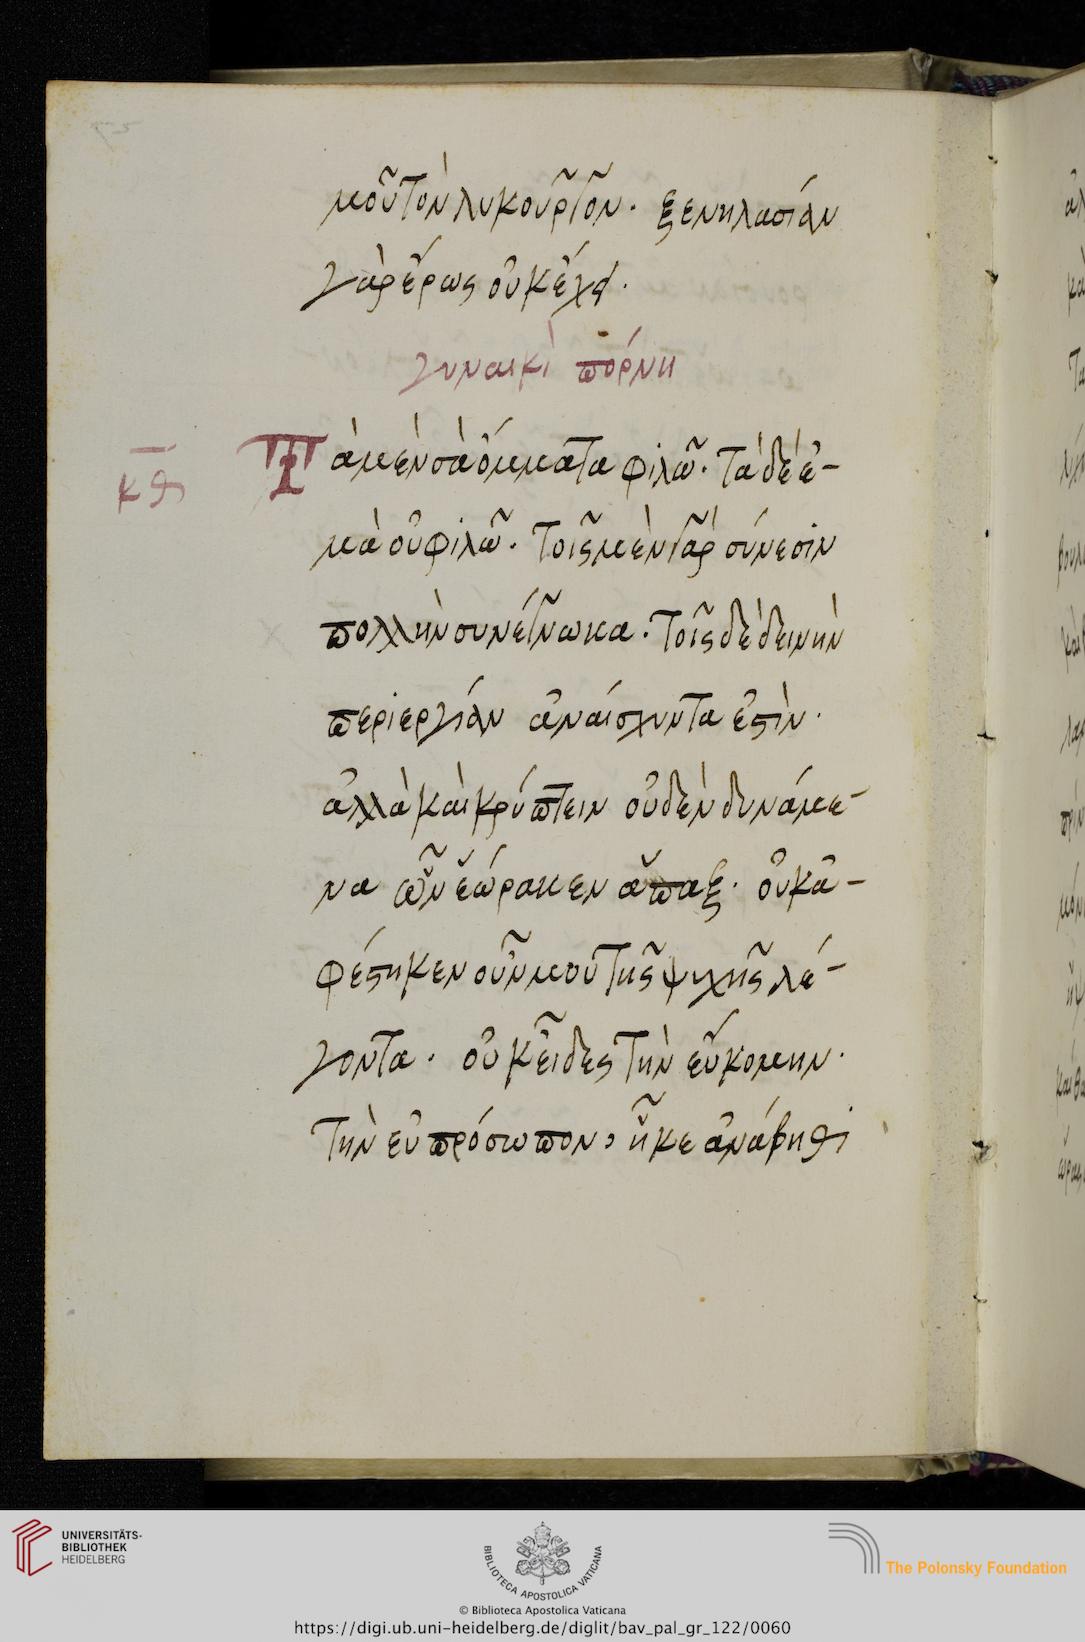 μοῦ τὸν λυκοῦργον. ξενηλασίαν
γὰρ ἔρως οὐκ ἔχει.
γυναικὶ πόρνη
κθ Τὰ μὲν σὰ ὄμματα φιλῶ. τὰ δὲ ἐ-
μὰ οὐ φιλῶ. τοῖς μὲν γὰρ σύνεσιν
πολλὴν συνέγνωκα. τοῖς δὲ δεινὴν
περιεργίαν ἀναίσχυντα ἐστὶν.
ἀλλὰ καὶ κρύπτειν οὐδὲν δυνάμε-
να ὧν ἑώρακεν ἅπαξ. οὐκ ἀ-
φέστηκεν οὖν μοῦ τῆς ψυχῆς λέ-
γοντα. οὐκ εἶδες τὴν εὔκομην.
τὴν εὐπρόσωπον, ἧκε ἀνάβηθι
UNIVERSITÄTS-
BIBLIOTHEK
HEIDELBERG
BIBLIOTECA APOSTOLICA VATICANA
The Polonsky Foundation
© Biblioteca Apostolica Vaticana
https://digi.ub.uni-heidelberg.de/diglit/bav_pal_gr_122/0060